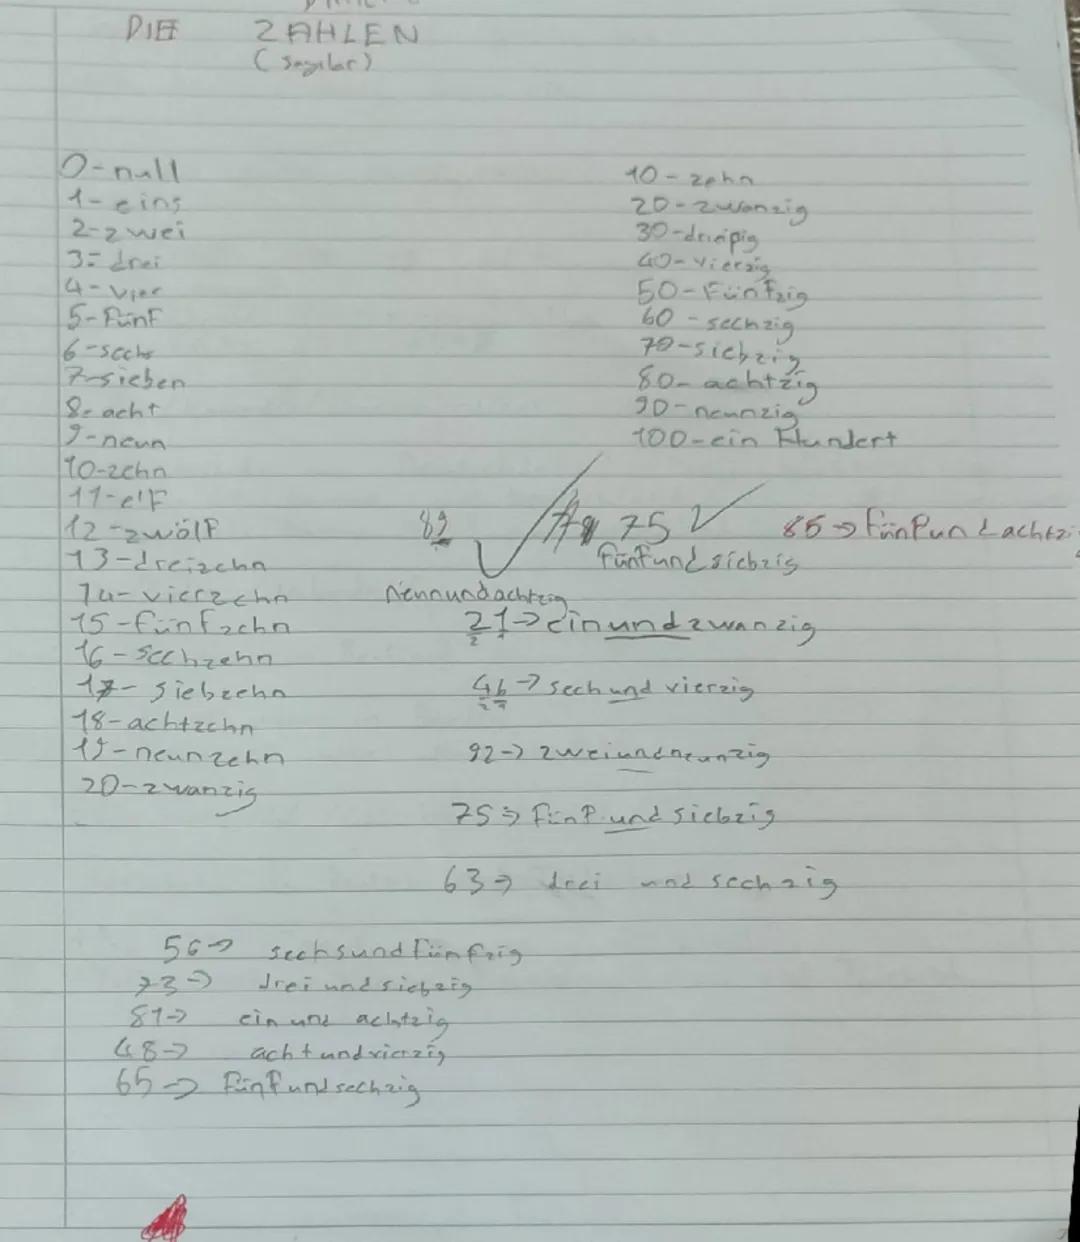 DIE ZAHLEN
(sayılar)
0-null
1-eins
2-zwei
3-drei
4-vier
5-fünf
6-sechs
7-sieben
8-acht
9-neun
10-zehn
11-elf
12-zwölf
13-dreizehn
14-vierzehn
15-fünfzehn
16-sechzehn
17-siebzehn
18-achtzehn
19-neunzehn
20-zwanzig
10-zehn
20-zwanzig
30-dreißig
40-vierzig
50-Fünfzig
60-sechzig
70-siebzig
80-achtzig
90-neunzig
100-ein Hundert
89
75
85→
fünfundsiebzig
21→einundzwanzig
2 1
46→sechundvierzig
92→zweiundneunzig
75→fünfundsiebzig
63→ drei und sechzig
56→ sechsundfünfzig
73→ dreiundsiebzig
81→ ein und achtzig
48→ achtundvierzig
65→ fünfundsechzig